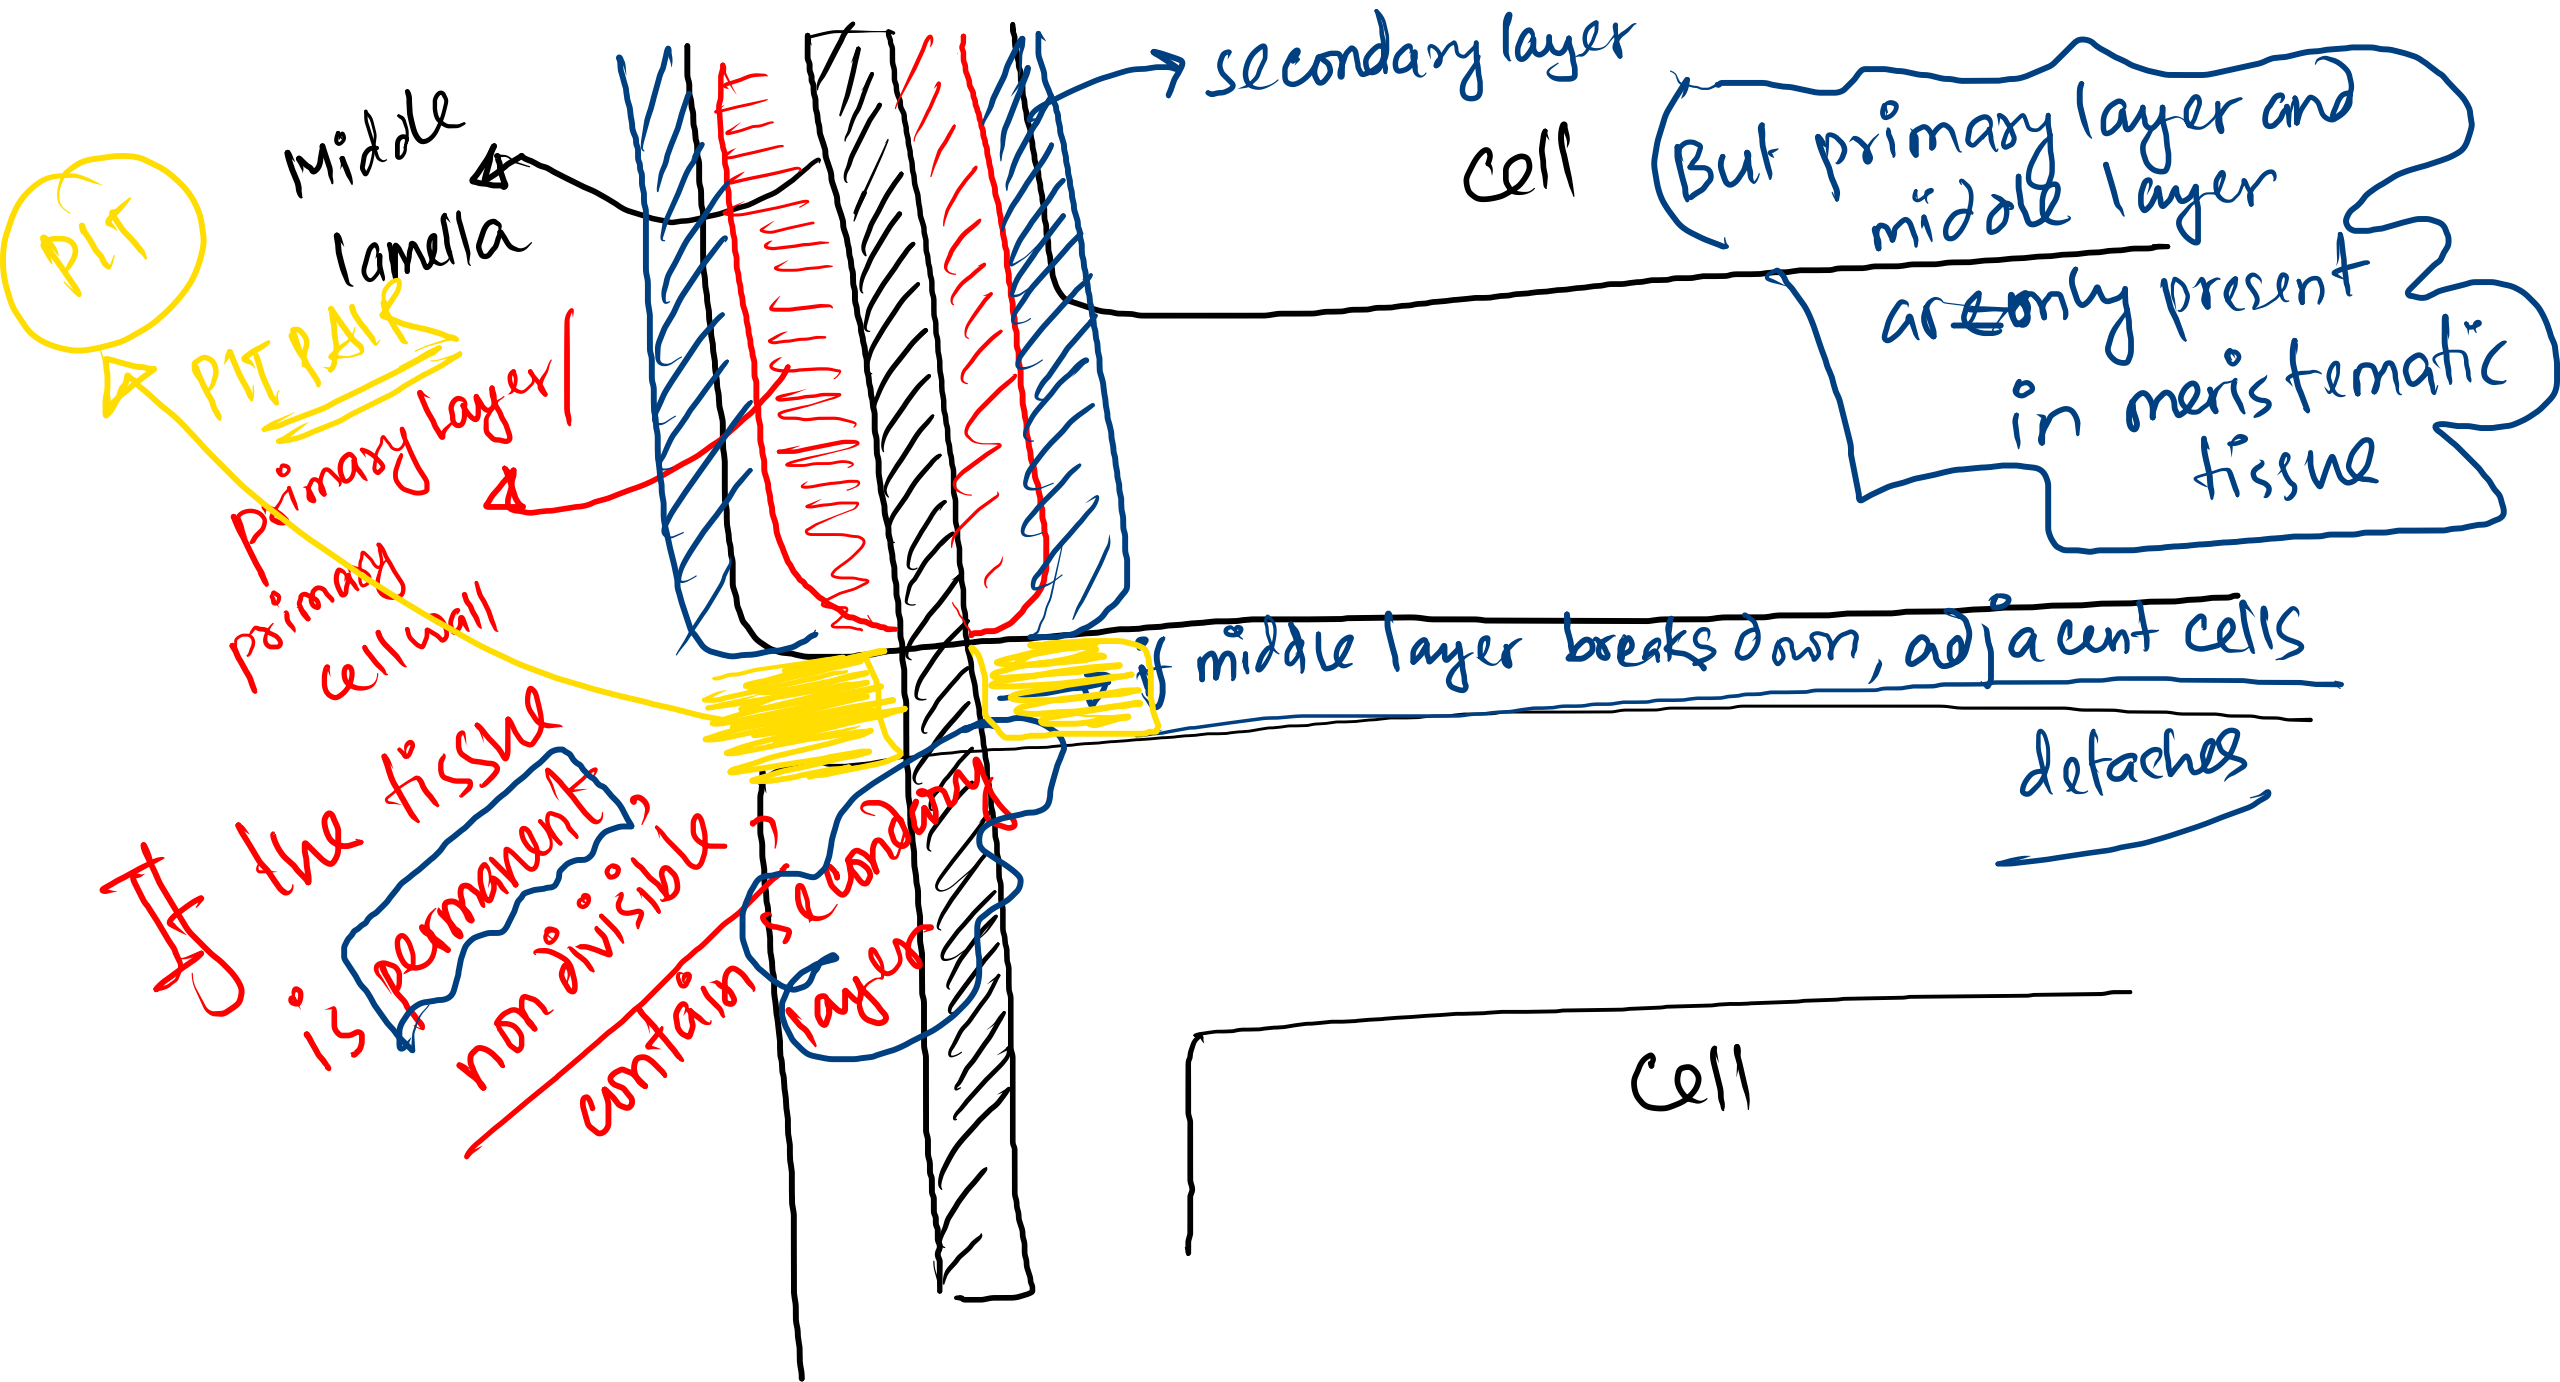 secondary layer
Middle
lamella
cell
But primary layer and
middle layer
are only present
in meristematic
tissue
PIT
PIT PAIR
primary layer/
primary
cell wall
If middle layer breaks down, adjacent cells
detaches
If the tissue
is permanent,
non divisible,
contain secondary
layer
cell